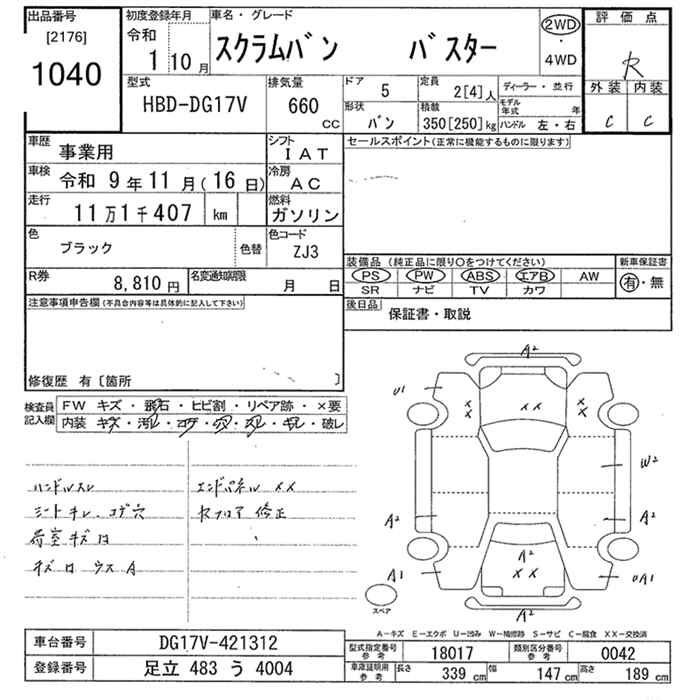 出品番号
[2176]
1040
初度登録年月
令和
1 10月
車名・グレード
スクラムバン バスター
2WD
・
4WD
評価点
R
外装 内装
C C
型式
HBD-DG17V
排気量
660
CC
ドア 5
定員 2[4]人
形状 バン
積載 350[250]kg
ディーラー・並行
モデル年式 年
ハンドル 左・右
車歴 事業用
シフト IAT
車検 令和 9年11月(16日)
冷房 AC
走行 11万1千407 km
燃料 ガソリン
色 ブラック 色替
色コード ZJ3
R券 8,810円
名変通知期限 月 日
セールスポイント(正常に機能するものに限ります)
装備品 (純正品に限り○をつけてください)
PS PW ABS エアB AW
SR ナビ TV カワ
新車保証書
有・無
後日品 保証書・取説
注意事項申告欄(不具合内容等は具体的に記入して下さい)
修復歴 有〔箇所 〕
検査員記入欄
FW キズ・飛石・ヒビ割・リペア跡・×要
内装 キズ・汚レ・コゲ・穴・スレ・キレ・破レ
ハンドルスレ
シートキレ、コゲ穴
荷室キズ凹
キズ凹 ウス A
エンドパネル XX
Rフロア 修正
A2
U1
XX
XX
XX
W2
A2
A2
A2
XX
A1
UA1
A2
スペア
A-キズ E-エクボ U-凹み W-補修跡 S-サビ C-腐食 XX-交換済
車台番号 DG17V-421312
登録番号 足立 483 う 4004
型式指定番号参考 18017
類別区分番号参考 0042
車庫証明用参考 長さ 339cm 幅 147cm 高さ 189cm